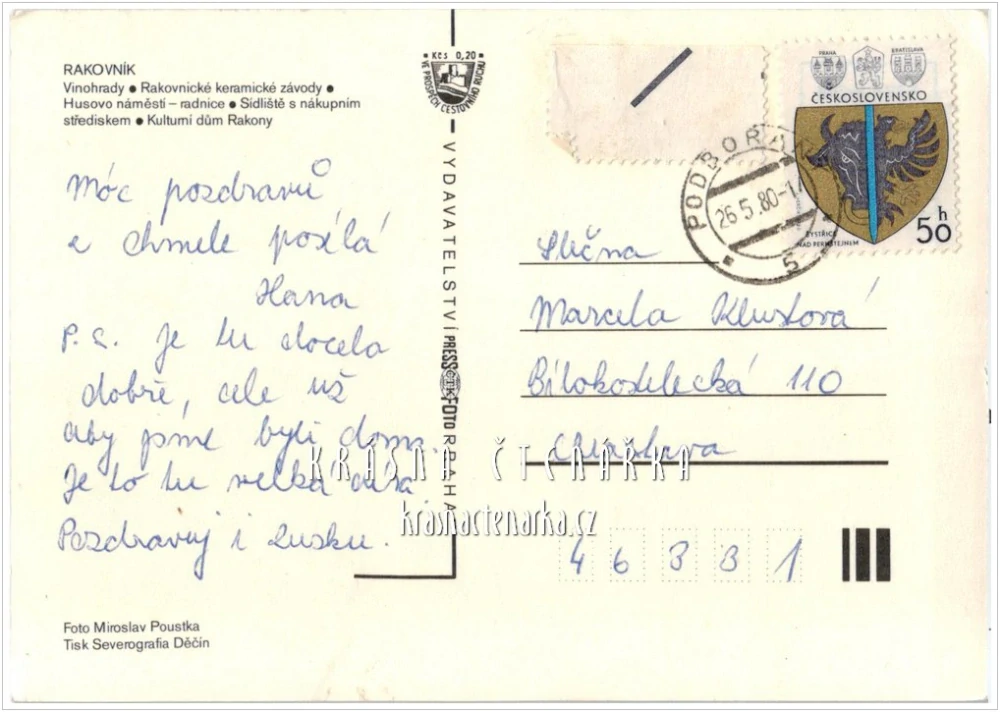 RAKOVNÍK
Vinohrady ● Rakovnické keramické závody ●
Husovo náměstí – radnice ● Sídliště s nákupním
střediskem ● Kulturní dům Rakony
Móc pozdravů
z chmele posílá
Hana
P.S. Je tu docela
dobře, ale už
aby jsme byli doma.
Je to tu velká díra
Pozdravuj i Zusku.
Foto Miroslav Poustka
Tisk Severografia Děčín
Kčs 0,20
VE PROSPĚCH CESTOVNÍHO RUCHU
VYDAVATELSTVÍ PRESSFOTO PRAHA
PRAHA
BRATISLAVA
ČESKOSLOVENSKO
BYSTŘICE
NAD PERNŠTEJNEM
50 h
26.5.80-17
5
Slečna
Marcela
Bílokostelecká 110
Chrastava
46331
KRÁSNÁ ČTENÁŘKA
krasnactenarka.cz